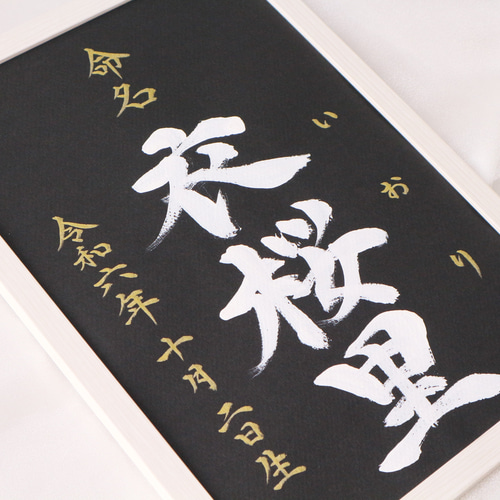 命名
衣桜里
いおり
令和六年 十月二日生